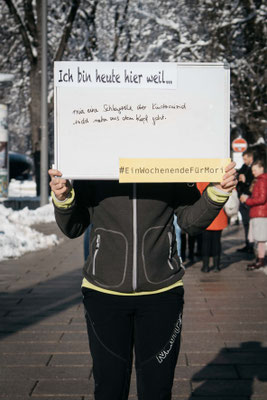 Ich bin heute hier weil...
mir eine Schlagzeile der Kinder
nicht mehr aus dem Kopf geht.
#EinWochenendeFürMori